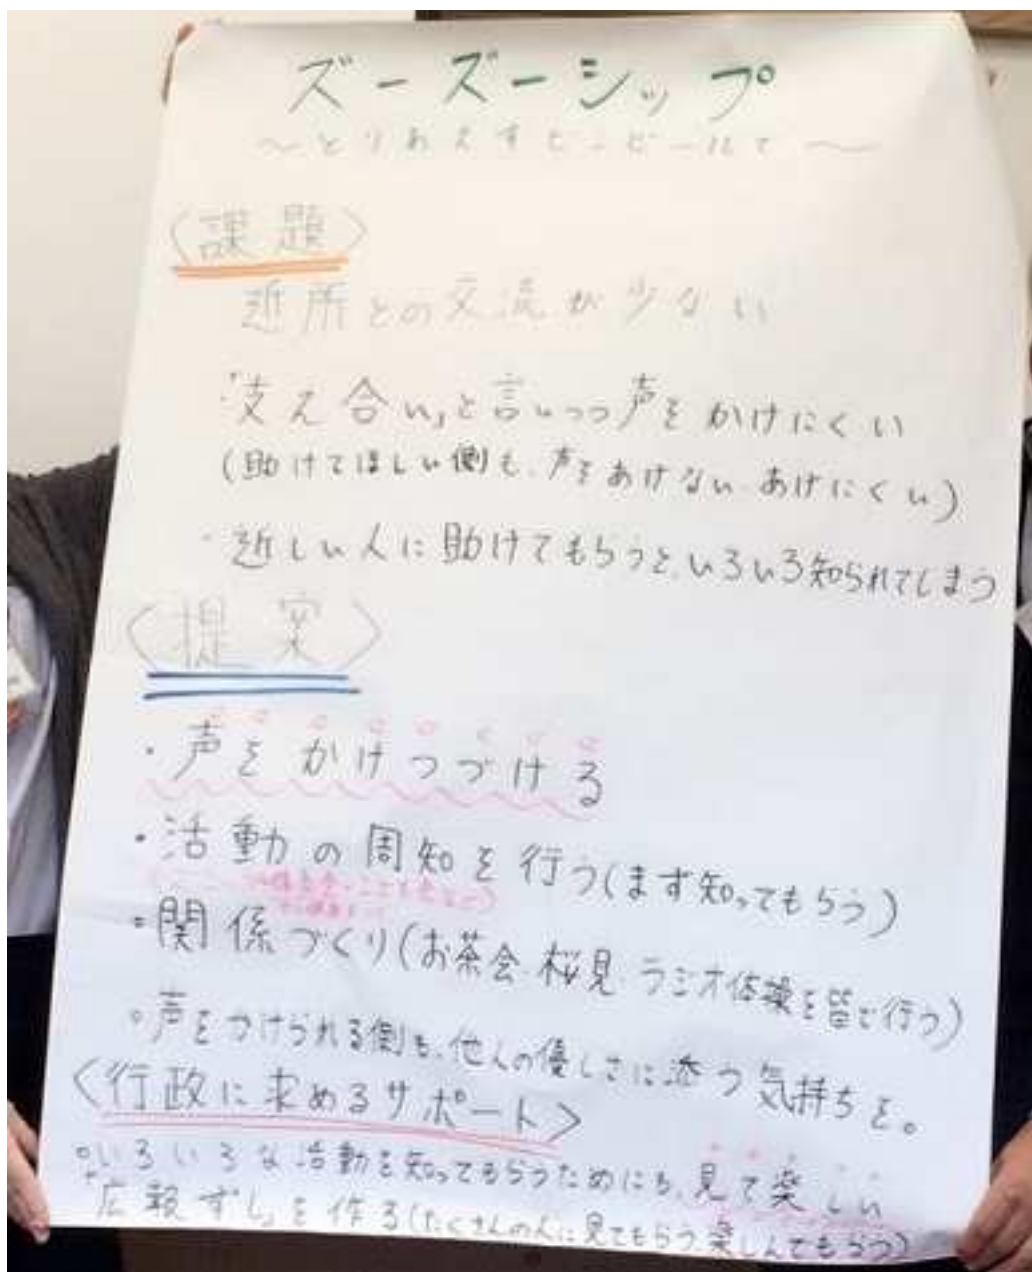 ズーズーシップ
〜とりあえずビービールで〜
〈課題〉
近所との交流が少ない
・「支え合い」と言いつつ声をかけにくい
(助けてほしい側も、声をあげない、あげにくい)
・近しい人に助けてもらうと、いろいろ知られてしまう
〈提案〉
・声をかけつづける
・活動の周知を行う(まず知ってもらう)
・関係づくり(お茶会、桜見、ラジオ体操を皆で行う)
。声をかけられる側も、他人の優しさに添う気持ちを。
〈行政に求めるサポート〉
。いろいろな活動を知ってもらうためにも、見て楽しい
"広報ずし"を作る(たくさんの人に見てもらう、楽しんでもらう)